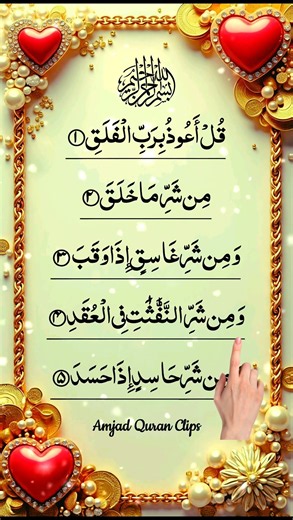 بسم الله الرحمن الرحيم
قُلْ أَعُوذُ بِرَبِّ الْفَلَقِ ۝١
مِن شَرِّ مَا خَلَقَ ۝٢
وَمِن شَرِّ غَاسِقٍ إِذَا وَقَبَ ۝٣
وَمِن شَرِّ النَّفَّٰثَٰتِ فِي الْعُقَدِ ۝٤
مِن شَرِّ حَاسِدٍ إِذَا حَسَدَ ۝٥
Amjad Quran Clips